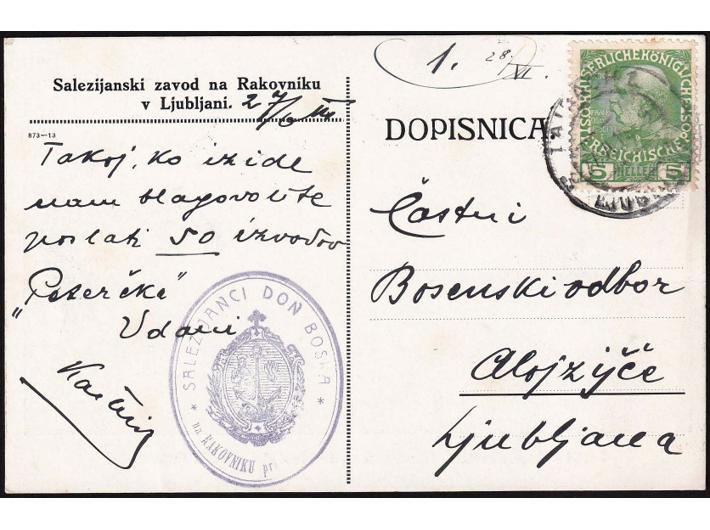 Salezijanski zavod na Rakovniku
v Ljubljani. 27/6
873—13
Takoj, ko izide
nam blagovolite
poslati 50 izvodov
"Peterčka"
Udani
SALEZIJANCI DON BOSKA
na RAKOVNIKU pri
1. 28/VI.
DOPISNICA
KAISERLICHE KÖNIGLICHE
ÖSTERREICHISCHE
5 HELLER 5
Častni
Bosenski odbor
Alojzijče
Ljubljana